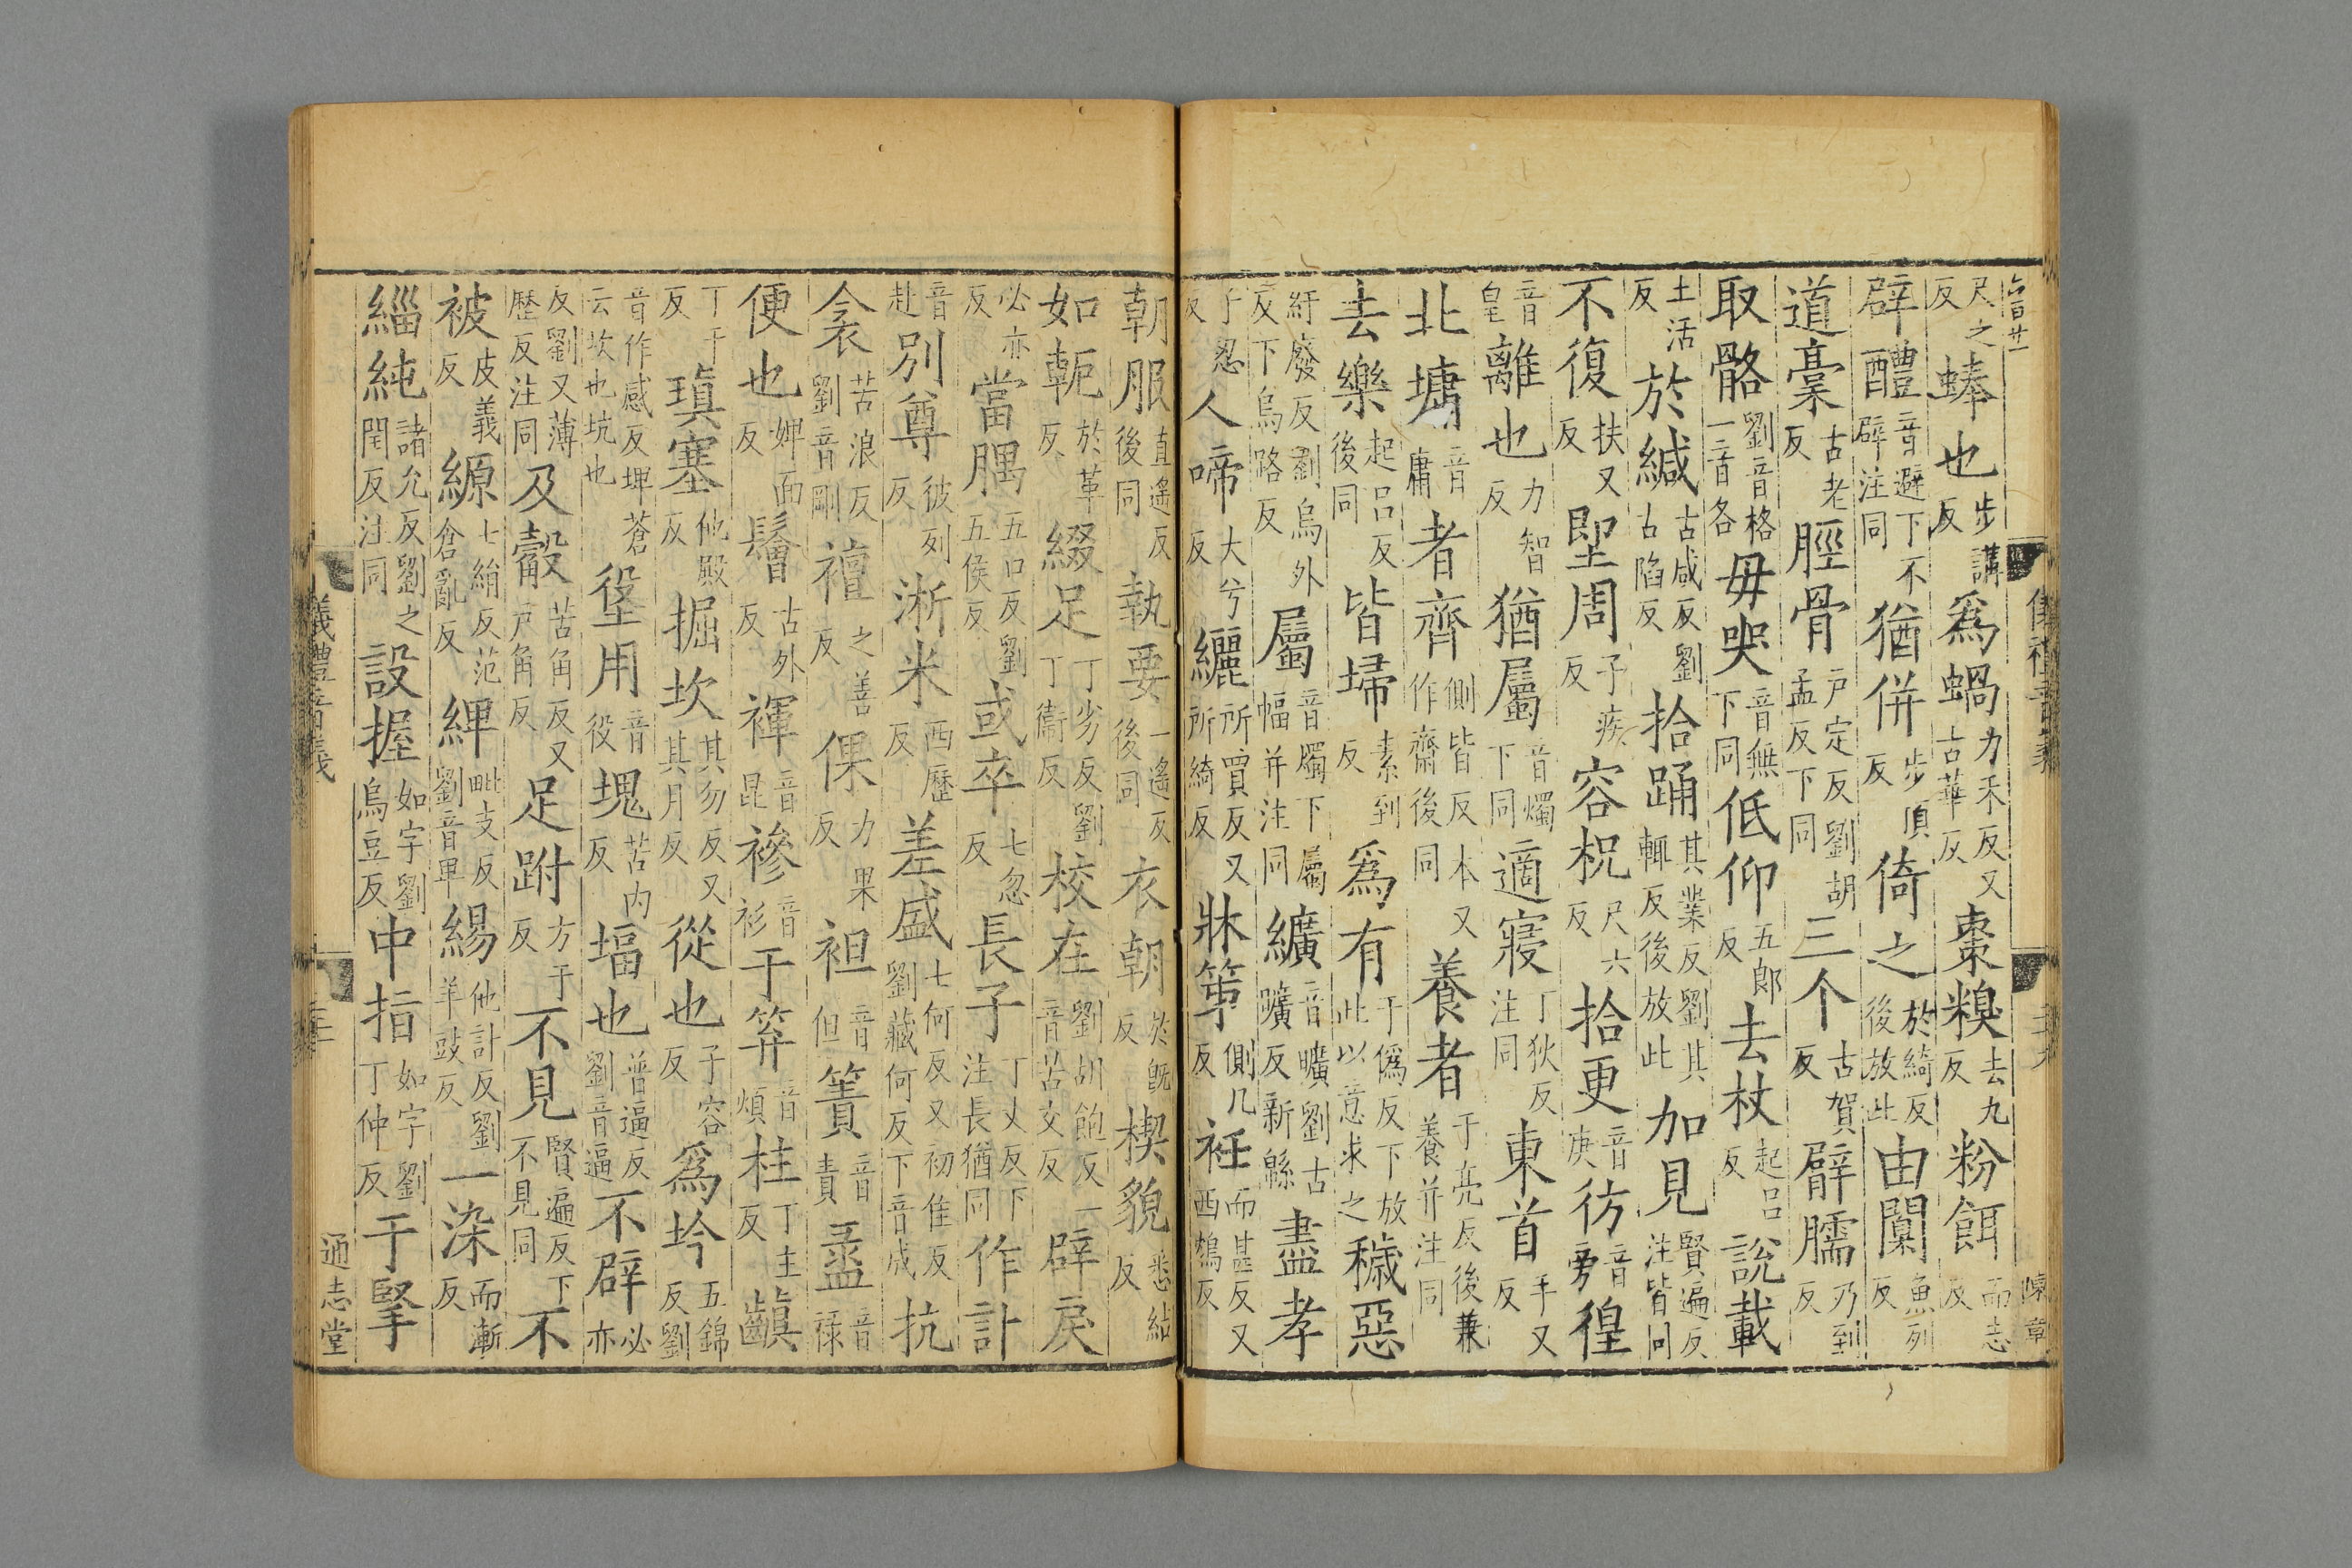 尺之反蜯也步講反爲蝸力禾反又古華反棗糗去九反粉餌而志反
辟醴音避下不辟注同猶併步頂反倚之於綺反後放此由闑魚列反
道稾古老反脛骨戶定反劉胡孟反下同三个古賀反臂臑乃到反
取骼劉音格一音各毋哭音無下同低仰五郎反去杖起呂反說載
土活反於緘古咸反劉古陷反拾踊其業反劉其輒反後放此加見賢遍反注皆同
不復扶又反堲周子疾反容柷尺六反拾更音庚彷音旁徨
音皇離也力智反猶屬音燭下同適寢丁狄反注同東首手又反
北墉音庸者齊側皆反本又作齋後同養者于亮反後兼養并注同
去樂起呂反後同皆埽素到反爲有于僞反下放此以意求之穢惡
紆廢反劉烏外反下烏路反屬音燭下屬幅并注同纊音曠劉古曠反新緜盡孝
子忍反人啼大兮反纚所買反又所綺反牀笫側几反衽而甚反又西鴆反
朝服直遙反後同執要一遙反後同衣朝於旣反楔貌悉結反
如軛於革反綴足丁劣反劉丁衞反校在劉胡飽反一音苦交反辟戾
必亦反當腢五口反劉五侯反或卒七忽反長子丁丈反下注長猶同作計
音赴別尊彼列反淅米西歷反差盛七何反又初隹反劉藏何反下音成抗
衾苦浪反劉音剛襢之善反倮力果反袒音但簀音責盝音祿
便也婢面反鬠古外反褌音昆襂音衫于笲音煩柱丁主反齻
丁千反瑱塞他殿反掘坎其勿反又其月反從也子容反爲坅五錦反劉
音作感反埤蒼云坎也坑也垼用音役塊苦内反堛也普逼反劉音逼不辟必亦
反劉又薄歷反注同及觳苦角反又戶角反足跗方于反不見賢遍反下不見同不
被皮義反縓七絹反范倉亂反綼毗支反劉音卑緆他計反劉羊豉反一染而漸反
緇純諸允反劉之閏反注同設握如字劉烏豆反中指如字劉丁仲反于掔
儀禮音義
通志堂
陳章